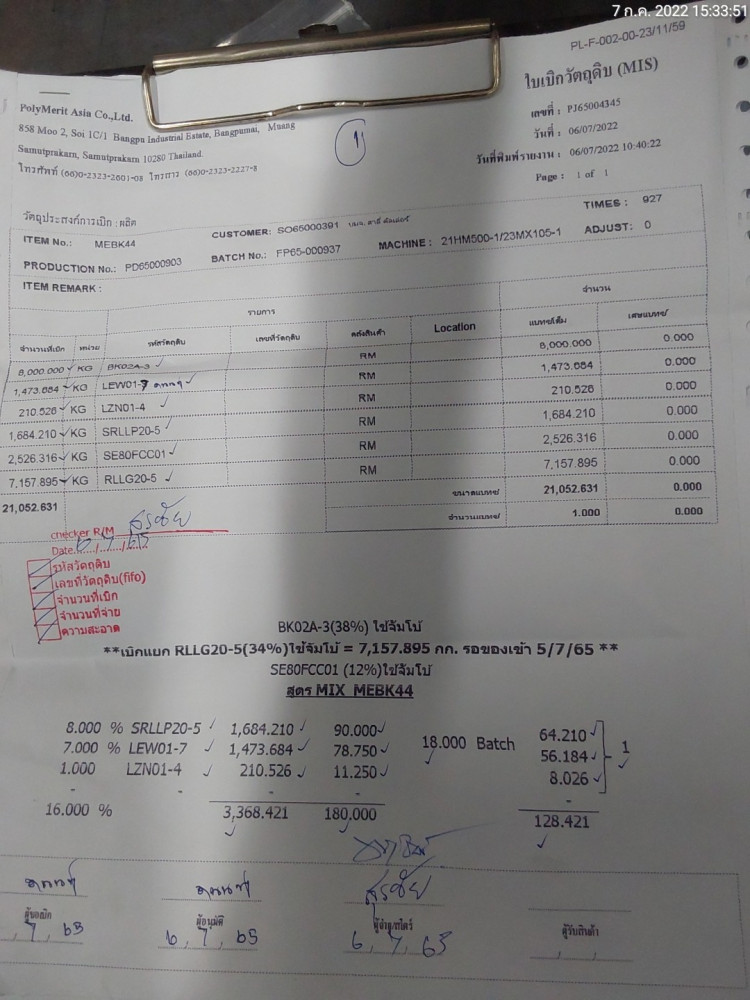 7 ก.ค. 2022 15:33:51
PL-F-002-00-23/11/59
ใบเบิกวัตถุดิบ (MIS)
PolyMerit Asia Co.,Ltd.
858 Moo 2, Soi 1C/1 Bangpu Industrial Estate, Bangpumai, Muang
Samutprakarn, Samutprakarn 10280 Thailand.
โทรศัพท์ (66)0-2323-2601-08 โทรสาร (66)0-2323-2227-8
1
เลขที่ : PJ65004345
วันที่ : 06/07/2022
วันที่พิมพ์รายงาน : 06/07/2022 10:40:22
Page : 1 of 1
วัตถุประสงค์การเบิก : ผลิต
ITEM No.: MEBK44 CUSTOMER: SO65000391 TIMES : 927
PRODUCTION No.: PD65000903 BATCH No.: FP65-000937 MACHINE : 21HM500-1/23MX105-1 ADJUST: 0
ITEM REMARK :
รายการ จำนวน
จำนวนที่เบิก หน่วย รหัสวัตถุดิบ เลขที่วัตถุดิบ คลังสินค้า Location แบทช์เต็ม เศษแบทช์
8,000.000 KG BK02A-3 RM 8,000.000 0.000
1,473.684 KG LEW01-7 RM 1,473.684 0.000
210.526 KG LZN01-4 RM 210.526 0.000
1,684.210 KG SRLLP20-5 RM 1,684.210 0.000
2,526.316 KG SE80FCC01 RM 2,526.316 0.000
7,157.895 KG RLLG20-5 RM 7,157.895 0.000
21,052.631 ขนาดแบทช์ 21,052.631 0.000
จำนวนแบทช์ 1.000 0.000
checker R/M สุรชัย
Date 6/7/65
รหัสวัตถุดิบ
เลขที่วัตถุดิบ(fifo)
จำนวนที่เบิก
จำนวนที่จ่าย
ความสะอาด
BK02A-3(38%) ใช้จัมโบ้
**เบิกแยก RLLG20-5(34%)ใช้จัมโบ้ = 7,157.895 กก. รอของเข้า 5/7/65 **
SE80FCC01 (12%)ใช้จัมโบ้
สูตร MIX MEBK44
8.000 % SRLLP20-5 1,684.210 90.000 64.210
7.000 % LEW01-7 1,473.684 78.750 18.000 Batch 56.184 1
1.000 LZN01-4 210.526 11.250 8.026
- - - - -
16.000 % 3,368.421 180.000 128.421
สุรชัย
ผู้ขอเบิก ผู้อนุมัติ ผู้จ่าย/สโตร์ ผู้รับสินค้า
, 7, 65 6, 7, 65 6, 7, 65 , ,